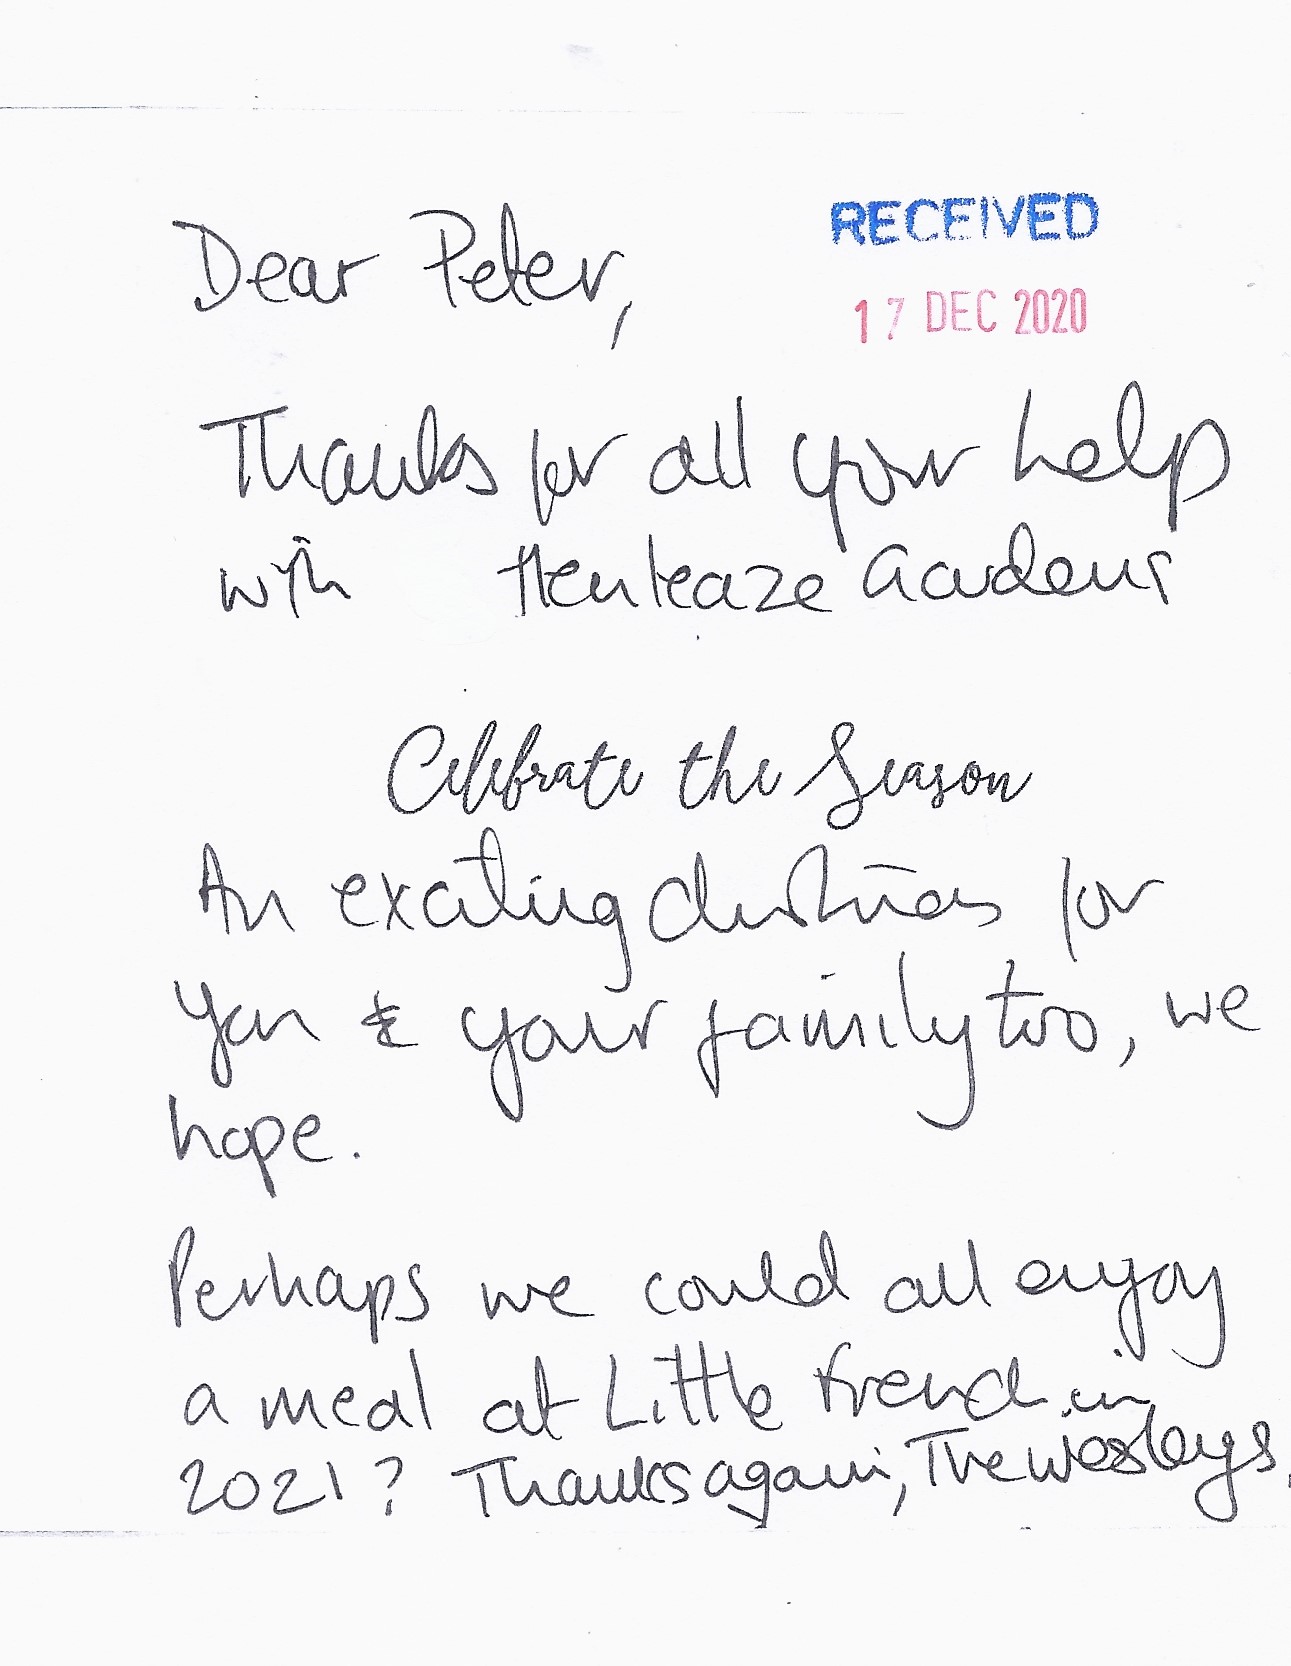 RECEIVED
17 DEC 2020
Dear Peter,
Thanks for all your help
with Henleaze Academy
Celebrate the Season
An exciting Christmas for
you & your family too, we
hope.
Perhaps we could all enjoy
a meal at Little French in
2021? Thanks again, The Wesleys.